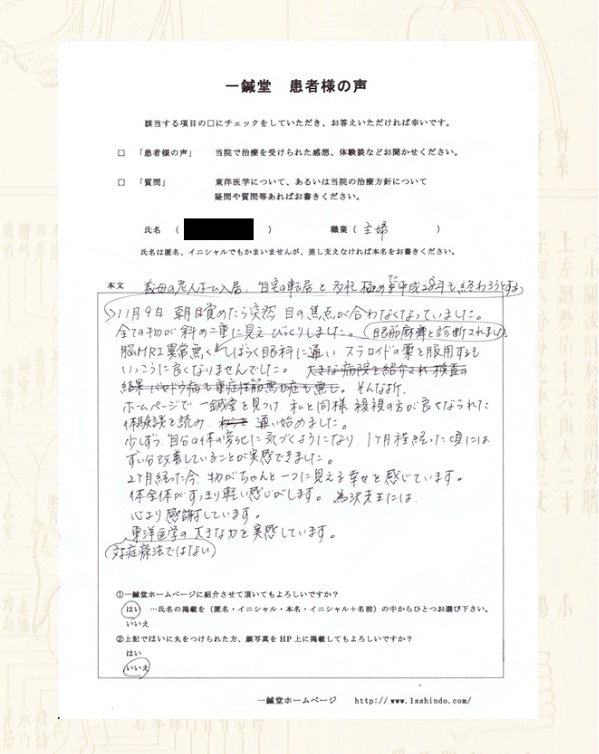 一鍼堂 患者様の声
該当する項目の□にチェックをしていただき、お答えいただければ幸いです。
□ 「患者様の声」 当院で治療を受けられた感想、体験談などお聞かせください。
□ 「質問」 東洋医学について、あるいは当院の治療方針について
疑問や質問等あればお書きください。
氏名 ( ) 職業 ( 主婦 )
氏名は匿名、イニシャルでもかまいませんが、差し支えなければ本名をお書きください。
本文 義母の老人ホーム入居、自宅の転居と多忙極めた平成28年も終わろうとする
11月9日 朝目覚めたら突然 目の焦点が合わなくなっていました。
全ての物が斜め二重に見えびっくりしました。(眼筋麻痺と診断されました)
脳MRI異常無く しばらく眼科に通い ステロイドの薬を服用するも
いっこうに良くなりませんでした。 大きな病院を紹介され 検査の
結果 バセドウ病も重症筋無力症も無し。 そんな折、
ホームページで 一鍼堂を見つけ 私と同様 複視の方が良くなられた
体験談を読み、 通い始めました。
少しずつ 自分の体の変化に気づくようになり 1ヶ月程経った頃には
ずい分改善していることが実感できました。
2ヶ月経った今、物がちゃんと一つに見える幸せを感じています。
体全体がすっきり軽い感じがします。 先生には
心より感謝しています。
東洋医学の大きな力を実感しています。
(対症療法ではない)
①一鍼堂ホームページに紹介させて頂いてもよろしいですか?
はい …氏名の掲載を (匿名・イニシャル・本名・イニシャル+名前) の中からひとつお選び下さい。
いいえ
②上記ではいに丸をつけられた方、顔写真を HP 上に掲載してもよろしいですか?
はい
いいえ
一鍼堂ホームページ http://www.1sshindo.com/